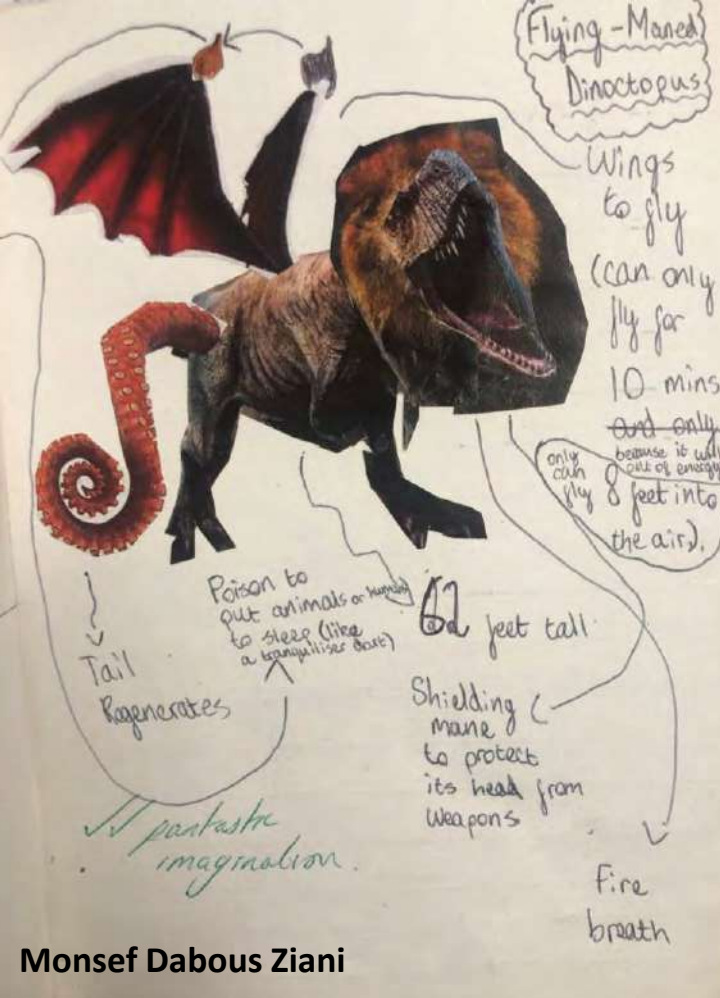 Flying-Maned
Dinoctopus
Wings
to fly
(can only
fly for
10 mins
and only
because it will
out of energy
only
can
fly
8 feet into
the air).
Poison to
put animals or humans
to sleep (like
a tranquiliser dart)
62 feet tall
Tail
Regenerates
Shielding
mane
to protect
its head from
weapons
Fire
breath
fantastic
imagination.
Monsef Dabous Ziani